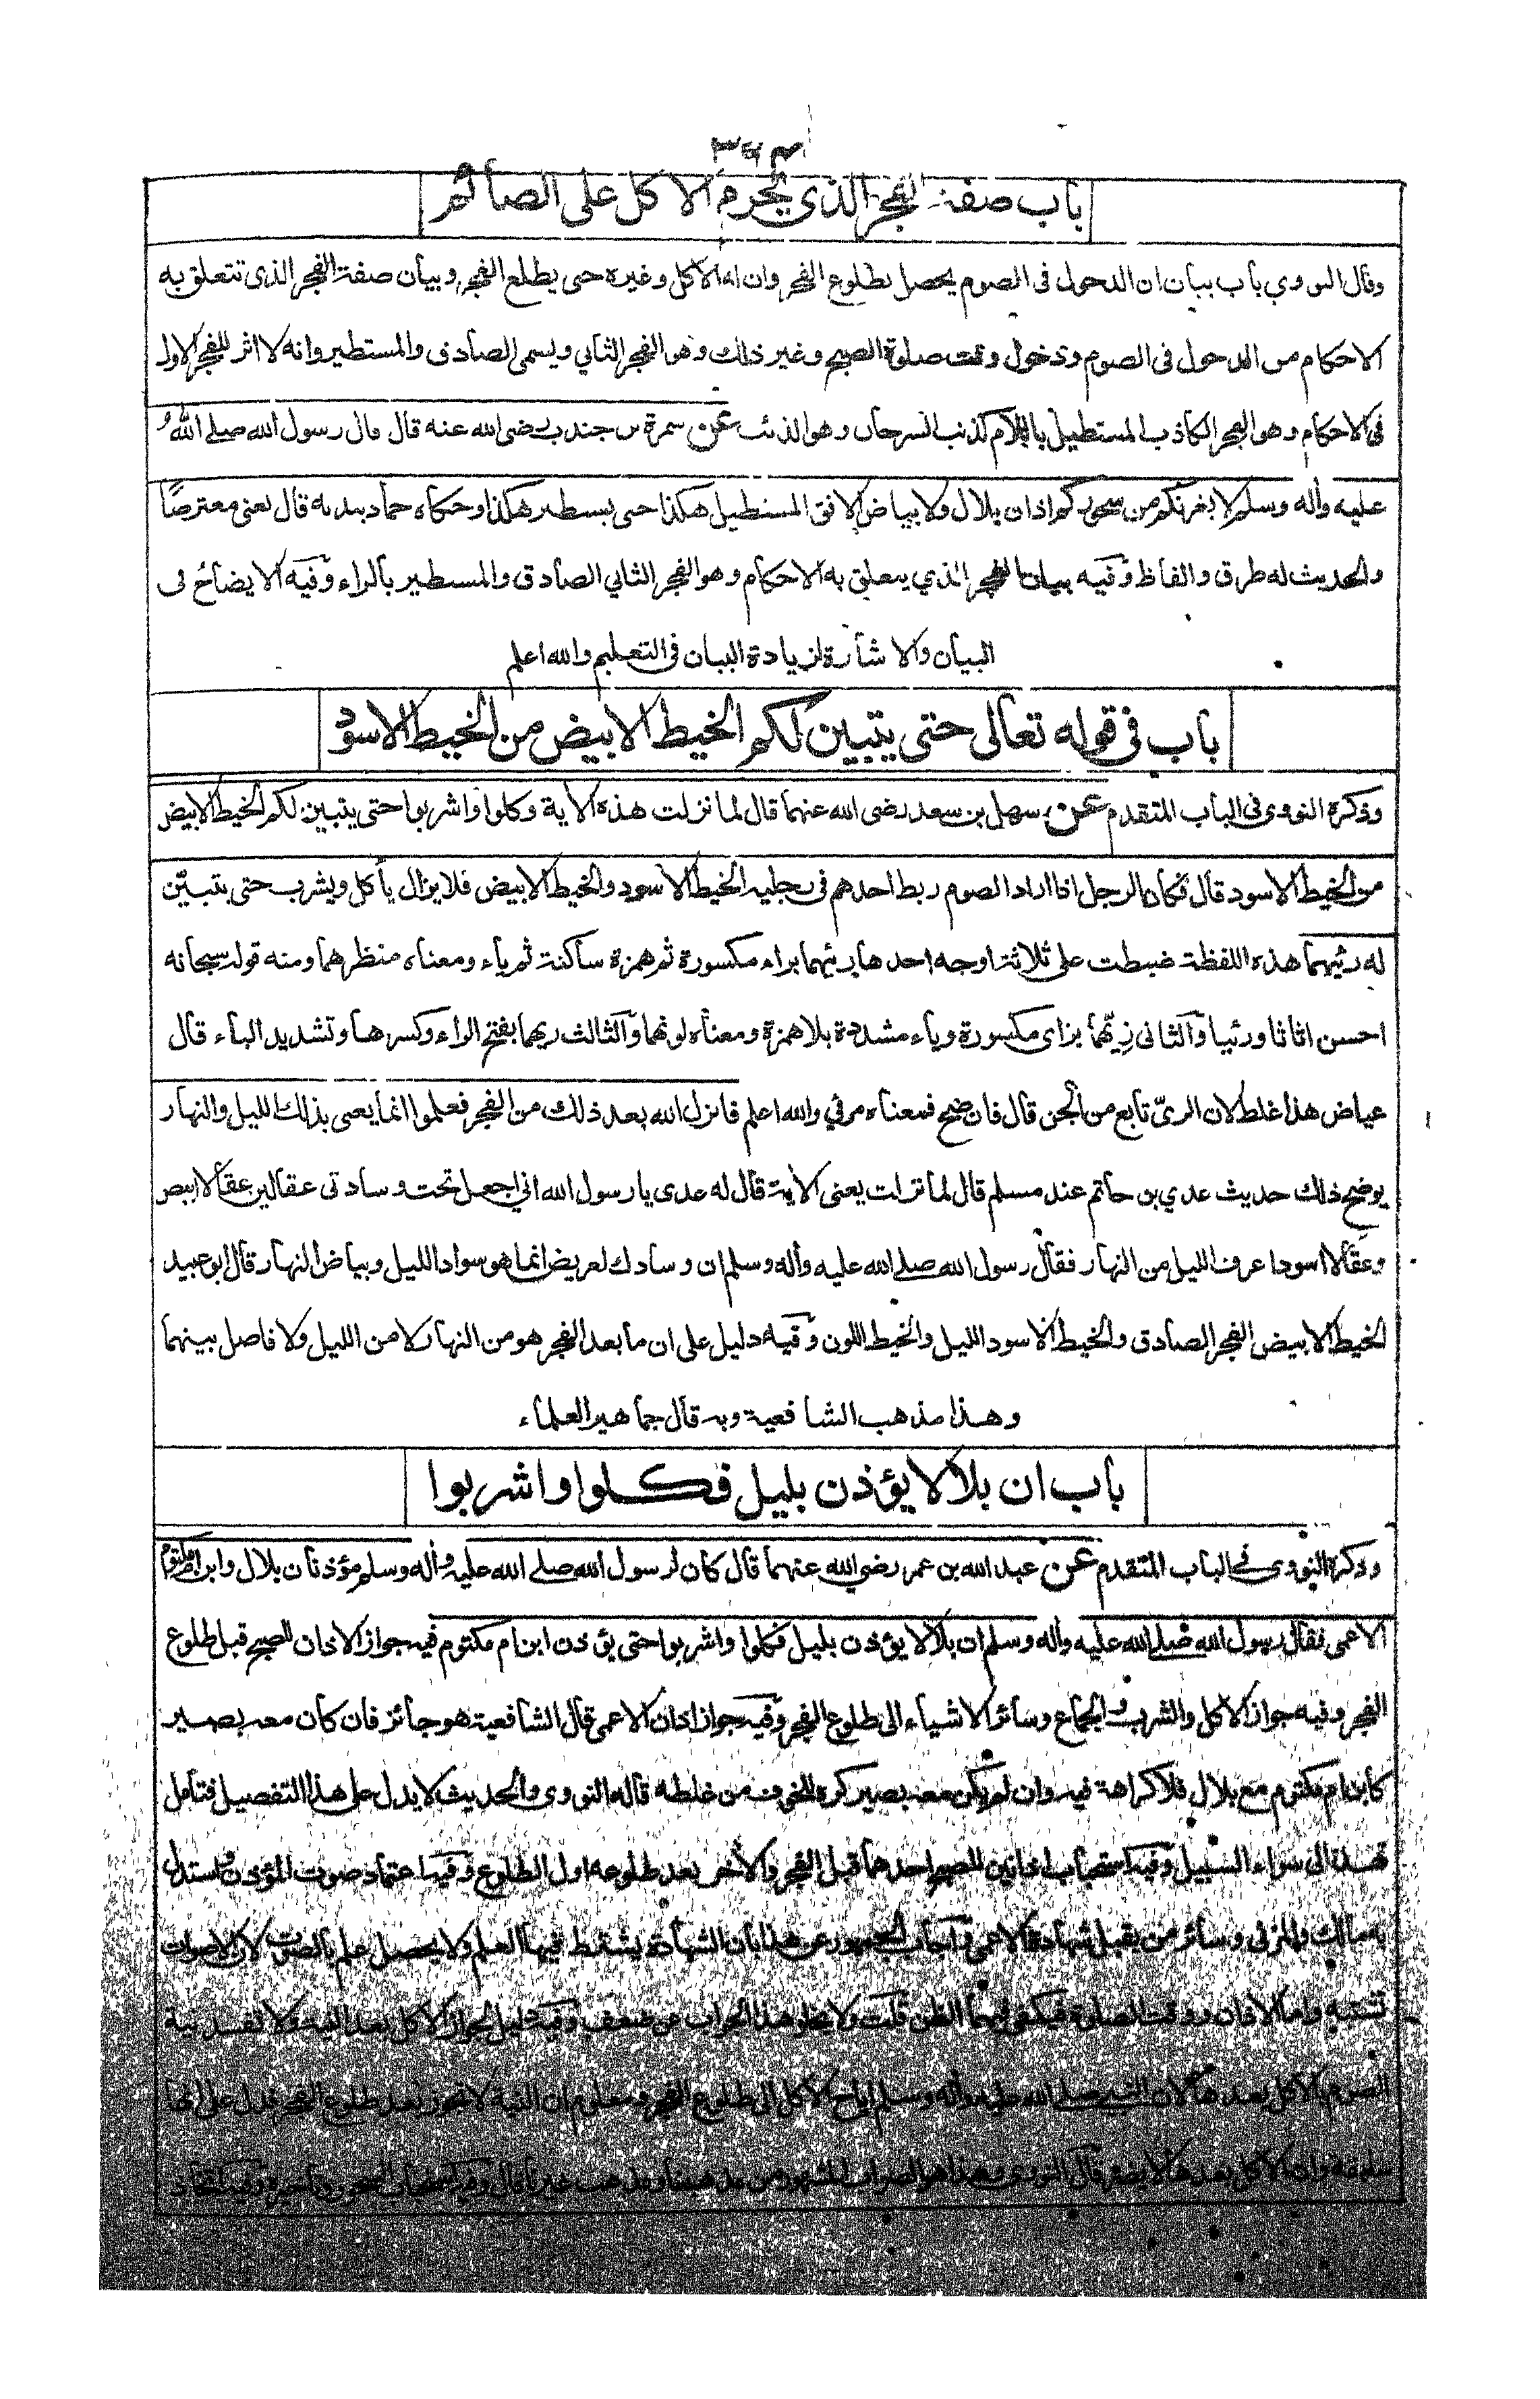 باب صفة الفجر الذى يحرم الاكل على الصائم
وقال النووي باب بيان ان الدخول فى الصوم يحصل بطلوع الفجر وان له الاكل وغيره حتى يطلع الفجر وبيان صفة الفجر الذى تتعلق به
الاحكام من الدخول فى الصوم ودخول وقت صلوة الصبح وغير ذلك وهو الفجر الثاني ويسمى الصادق والمستطير وانه لا اثر للفجر الاول
فى الاحكام وهو الفجر الكاذب المستطيل باللام كذنب السرحان وهو الذئب عن سمرة بن جندب رضى الله عنه قال قال رسول الله صلے الله
عليه واٰله وسلم لا يغرنكم من سحوركم اذان بلال ولا بياض الافق المستطيل هكذا حتى يستطير هكذا وحكاه حماد بيديه قال يعنى معترضًا
والحديث له طرق والفاظ وفيه بيان الفجر الذي يتعلق به الاحكام وهو الفجر الثاني الصادق والمستطير بالراء وفيه الايضاح فى
البيان والاشارة لزيادة البيان فى التعليم والله اعلم
باب فى قوله تعالى حتى يتبين لكم الخيط الابيض من الخيط الاسود
وذكره النووى فى الباب المتقدم عن سهل بن سعد رضى الله عنهما قال لما نزلت هذه الاية وكلوا واشربوا حتى يتبين لكم الخيط الابيض
من الخيط الاسود قال فكان الرجل اذا اراد الصوم ربط احدهم فى رجليه الخيط الاسود والخيط الابيض فلا يزال يأكل ويشرب حتى يتبيّن
له رئيهما هذه اللفظة ضبطت على ثلاثة اوجه احدها رئيهما براء مكسورة ثم همزة ساكنة ثم ياء ومعناه منظرهما ومنه قوله سبحانه
احسن اثاثا ورئيا والثانى زيّهما بزاى مكسورة وياء مشددة بلا همزة ومعناه لونهما والثالث ريهما بفتح الراء وكسرها وتشديد الياء قال
عياض هذا غلط لان الريّ تابع من الجن قال فان صح فمعناه مرئي والله اعلم فانزل الله بعد ذلك من الفجر فعلموا انما يعنى بذلك الليل والنهار
يوضح ذلك حديث عدي بن حاتم عند مسلم قال لما نزلت يعنى الاية قال له عدى يا رسول الله اني اجعل تحت وسادتى عقالين عقالا ابيض
وعقالا اسودا عرف الليل من النهار فقال رسول الله صلے الله عليه واٰله وسلم ان وسادك لعريض انما هو سواد الليل وبياض النهار قال ابو عبيد
الخيط الابيض الفجر الصادق والخيط الاسود الليل والخيط اللون وفيه دليل على ان ما بعد الفجر هو من النهار لا من الليل ولا فاصل بينهما
وهذا مذهب الشافعية وبه قال جماهير العلماء
باب ان بلالا يؤذن بليل فكلوا واشربوا
وذكره النووى فى الباب المتقدم عن عبد الله بن عمر رضي الله عنهما قال كان لرسول الله صلے الله عليه واٰله وسلم مؤذنان بلال وابن ام مكتوم
الاعمى فقال رسول الله صلے الله عليه واٰله وسلم ان بلالا يؤذن بليل فكلوا واشربوا حتى يؤذن ابن ام مكتوم فيه جواز الاذان للصبح قبل طلوع
الفجر وفيه جواز الاكل والشرب والجماع وسائر الاشياء الى طلوع الفجر وفيه جواز اذان الاعمى قال الشافعية هو جائز فان كان معه بصير
كابن ام مكتوم مع بلال فلا كراهة فيه وان لم يكن معه بصير كره للخوف من غلطه قاله النووى والحديث لا يدل على هذا التفصيل فتأمل
تهد الى سواء السبيل وفيه استحباب اذانين للصبح احدهما قبل الفجر والأخر بعد طلوعه اول الطلوع وفيه اعتماد صوت المؤذن واستدل
به مالك والمزنى وسائر من يقبل شهادة الاعمى واجاب الجمهور عن هذا بان الشهادة يشترط فيها العلم ولا يحصل علم بالصوت لان الاصوات
تشتبه واما الاذان ووقت الصلوة فيكفى فيهما الظن قلت ولا يخلو هذا الجواب عن ضعف وفيه دليل لجواز الاكل بعد النية ولا تفسد نية
الصوم بالاكل بعدها لان النبي صلے الله عليه واٰله وسلم اباح الاكل الى طلوع الفجر ومعلوم ان النية لا تجوز بعد طلوع الفجر فدل على انها
سابقة وان الاكل بعدها لا يضر قال النووى وهذا هو الصواب المشهور من مذهبنا ومذهب غيرنا قال وفيه استحباب السحور وتأخيره وفيه اتخاذ